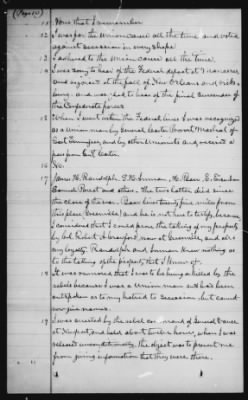 (Page 10)
10 None that I remember
12 I was for the Union cause all the time and voted
against secession in every shape
13 I adhered to the Union cause all the time.
14 I was sorry to hear of the Federal defeat at Manassas
and rejoiced at the fall of New Orleans and Vicks-
burg and was glad to hear of the final surrender of
the Confederate forces
15 When I went within the Federal lines I was recognized
as a Union man by General Carter Provost Marshal of
East Tennessee, and by other Unionists and received a
pass from Genl Carter
16 No.
17 James H. Randolph, Inman, H. Barr,
and others. The two latter died since
the close of the war. Barr lives twenty five miles from
this place (Greeneville) and he is not here to testify, because
I considered that I could prove the taking of my property
by Col. Robert A. Crawford, now at Greeneville, and also
my loyalty. Randolph and Inman know nothing as
to the taking of the property that I know of.
18 It was rumored that I was to be hung or killed by the
rebels because I was a Union man and had been
outspoken as to my hatred to Secession but cannot
now give names.
19 I was arrested by the rebel command of General
at Newport, and held about twelve hours, when I was
released unconditionally. The object was to prevent me
from giving information that they were there.